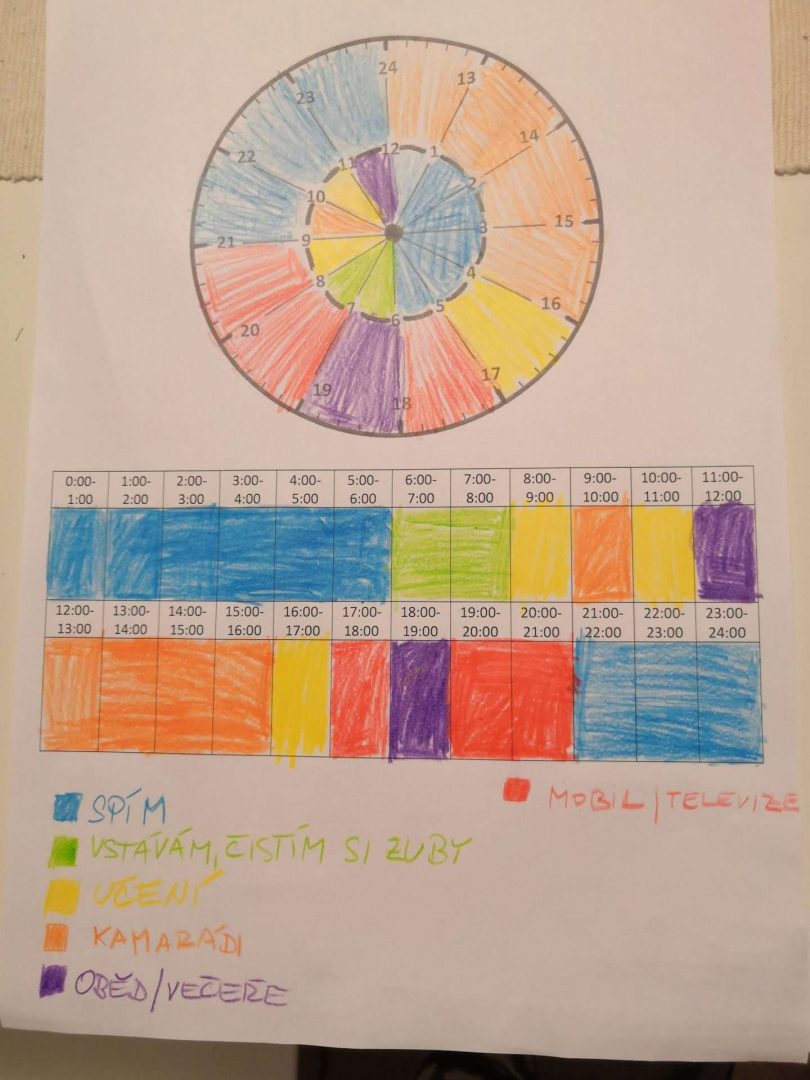 24
13
23
14
22
12
11
1
10
2
15
3
9
21
8
4
16
7
5
20
6
17
19
18
0:00- 1:00- 2:00- 3:00- 4:00- 5:00- 6:00- 7:00- 8:00- 9:00- 10:00- 11:00-
1:00 2:00 3:00 4:00 5:00 6:00 7:00 8:00 9:00 10:00 11:00 12:00
12:00- 13:00- 14:00- 15:00- 16:00- 17:00- 18:00- 19:00- 20:00- 21:00- 22:00- 23:00-
13:00 14:00 15:00 16:00 17:00 18:00 19:00 20:00 21:00 22:00 23:00 24:00
SPÍM
MOBIL/TELEVIZE
VSTÁVÁM, ČISTÍM SI ZUBY
UČENÍ
KAMARÁDI
OBĚD/VEČEŘE